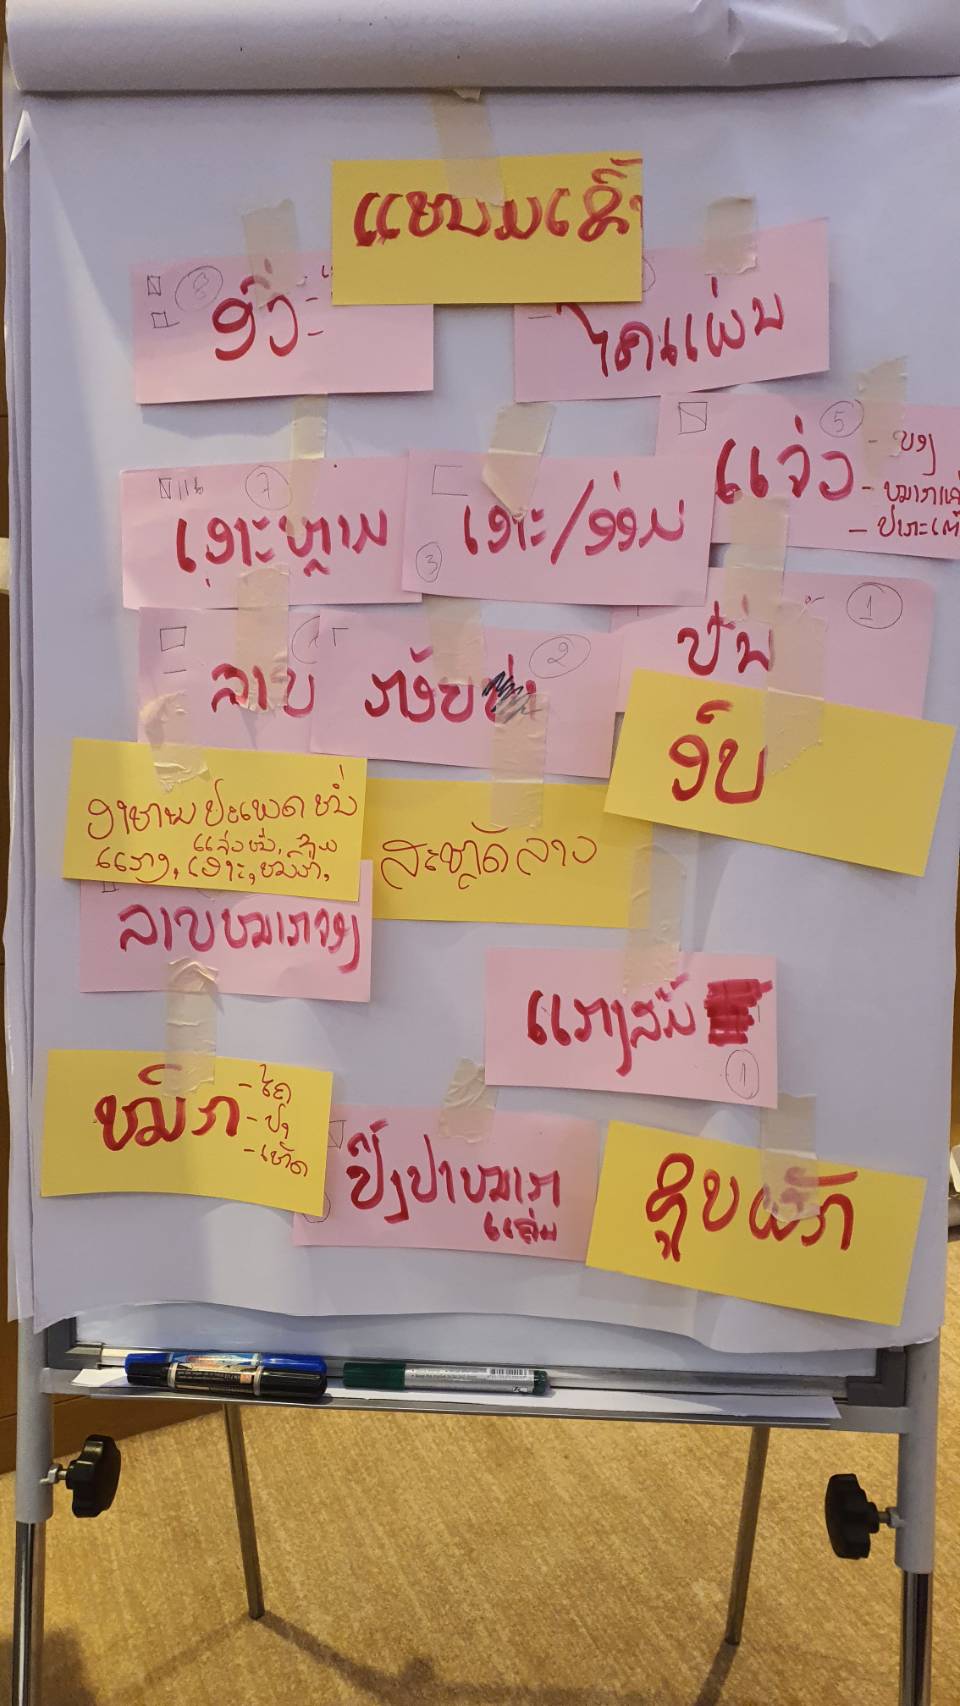 ແໜມເຂົ້າ
8
ອົ່ວ -
ໄຄແຜ່ນ
5
ແຈ່ວ - ບອງ
- ໝາກ
- ປາແດກ
7
ເອາະຫຼາມ
3
ເອາະ/ອ່ອມ
ລາບ
2
ກ້ອຍ
1
ປົ່ນ
ອົບ
ອາຫານປະເພດໜໍ່
ແກງ, ແຈ່ວໜໍ່, ຊຸບ
ເອາະ, ໝົກ,
ສະຫຼັດລາວ
ລາບໝາກ
ແກງສົ້ມ
1
ໝົກ - ໄຄ
- ປາ
- ເຫັດ
ປີ້ງປາໝາກ
ແຄ່ນ
ຊຸບຜັກ